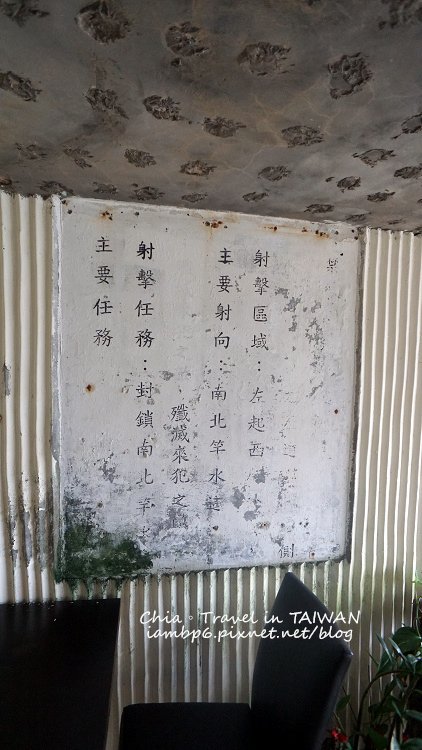 射擊區域：左起西
側
主要射向：南北竿水道
殲滅來犯之
射擊任務：封鎖南北竿水
主要任務
Chia。Travel in TAIWAN
iambp6.pixnet.net/blog